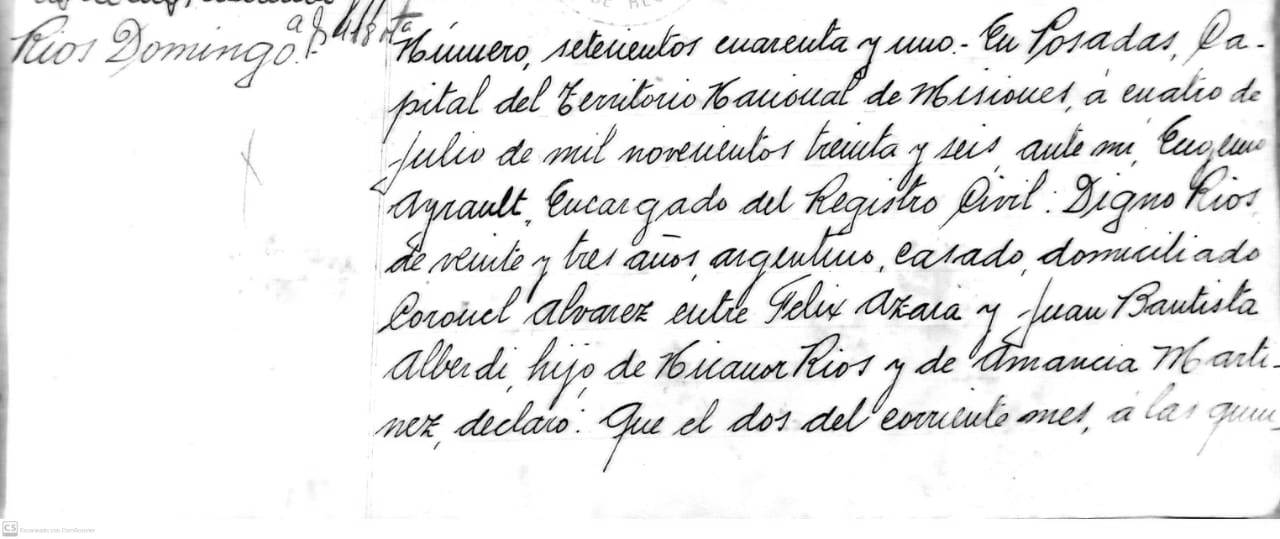 Rios Domingo.
Número, setecientos cuarenta y uno.- En Posadas, Ca-
pital del Territorio Nacional de Misiones, á cuatro de
Julio de mil novecientos treinta y seis, ante mi, Eugenio
Ayrault, Encargado del Registro Civil: Digno Rios,
de veinte y tres años, argentino, casado, domiciliado
Coronel Alvarez entre Felix Azara y Juan Bautista
Alberdi, hijo de Nicanor Rios y de Amancia Marti-
nez, declaró: Que el dos del corriente mes, á las quin-
CS Escaneado con CamScanner